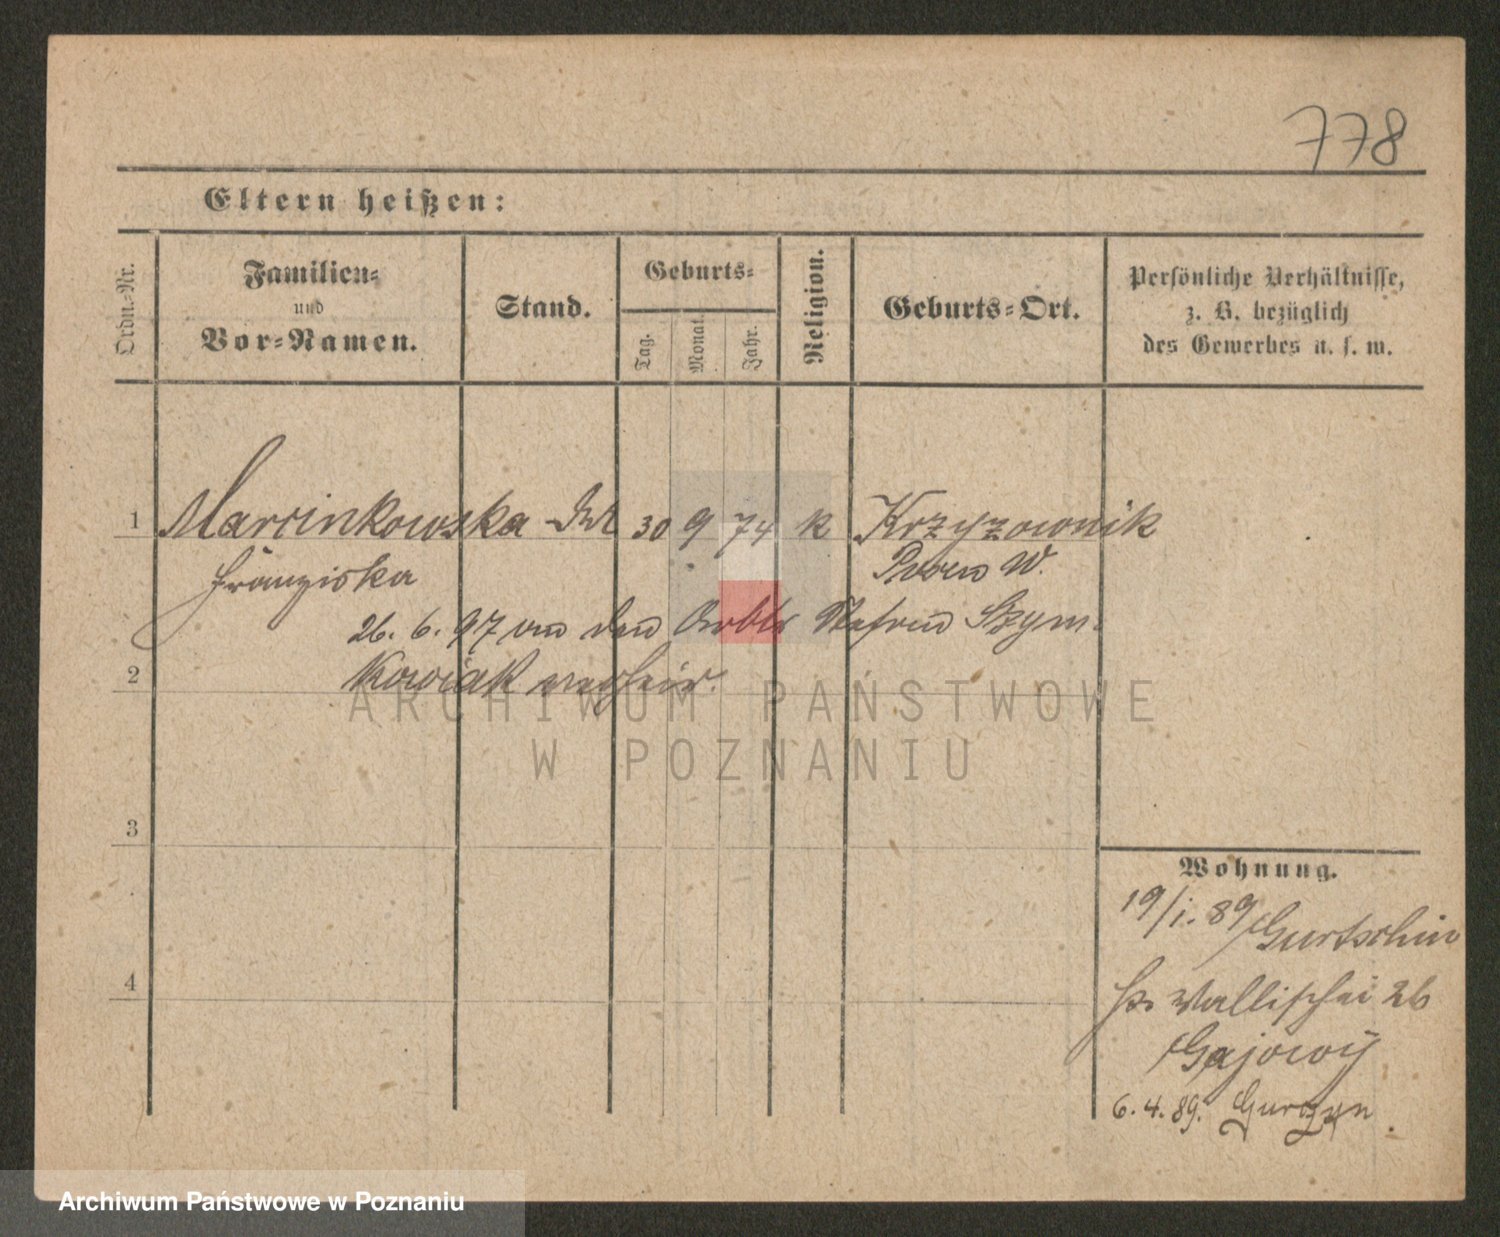 778
Eltern heißen:
Ordn.-Nr.
Familien-
und
Vor-Namen.
Stand.
Geburts-
Tag.
Monat.
Jahr.
Religion.
Geburts-Ort.
Persönliche Verhältnisse,
z. B. bezüglich
des Gewerbes u. s. w.
1 Marcinkowska 30 9 74 k Krzyzownik
Franziska Posen W.
26. 6. 97 an den Arbtr Stefan Szym-
kowiak verheir.
2
3
4
Wohnung.
19/1. 89 Gurtschin
Wallischei 26
Gajowy
6. 4. 89. Gurczyn.
ARCHIWUM PAŃSTWOWE
W POZNANIU
Archiwum Państwowe w Poznaniu